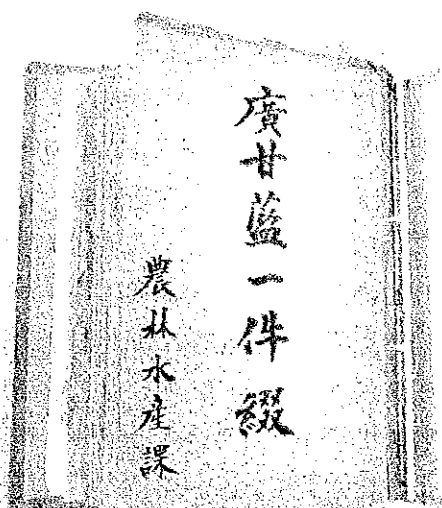 廣甘藍一件綴
農林水産課